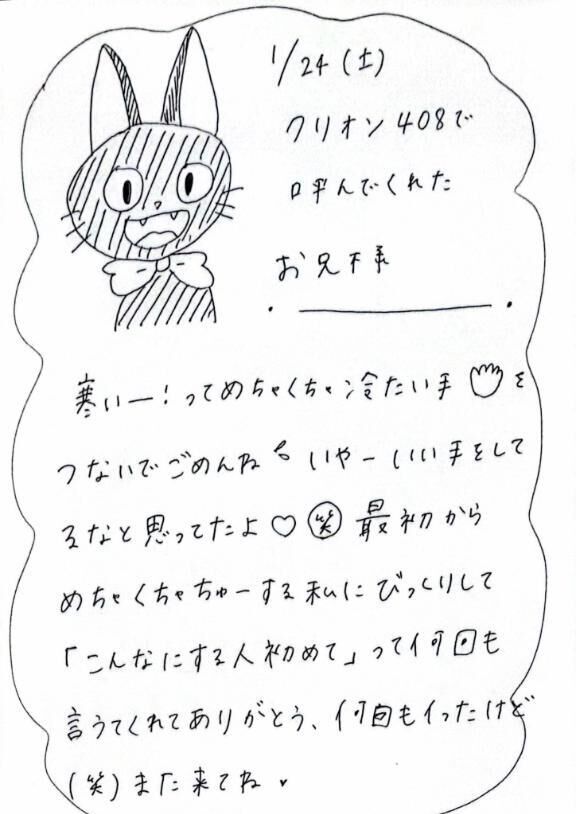 1/24(土)
クリオン408で
呼んでくれた
お兄様
寒いー!ってめちゃくちゃ冷たい手を
つないでごめんね いやーいい手をして
るなと思ってたよ♡(笑)最初から
めちゃくちゃちゅーする私にびっくりして
「こんなにする人初めて」って何回も
言うてくれてありがとう、何回もイったけど
(笑)また来てね